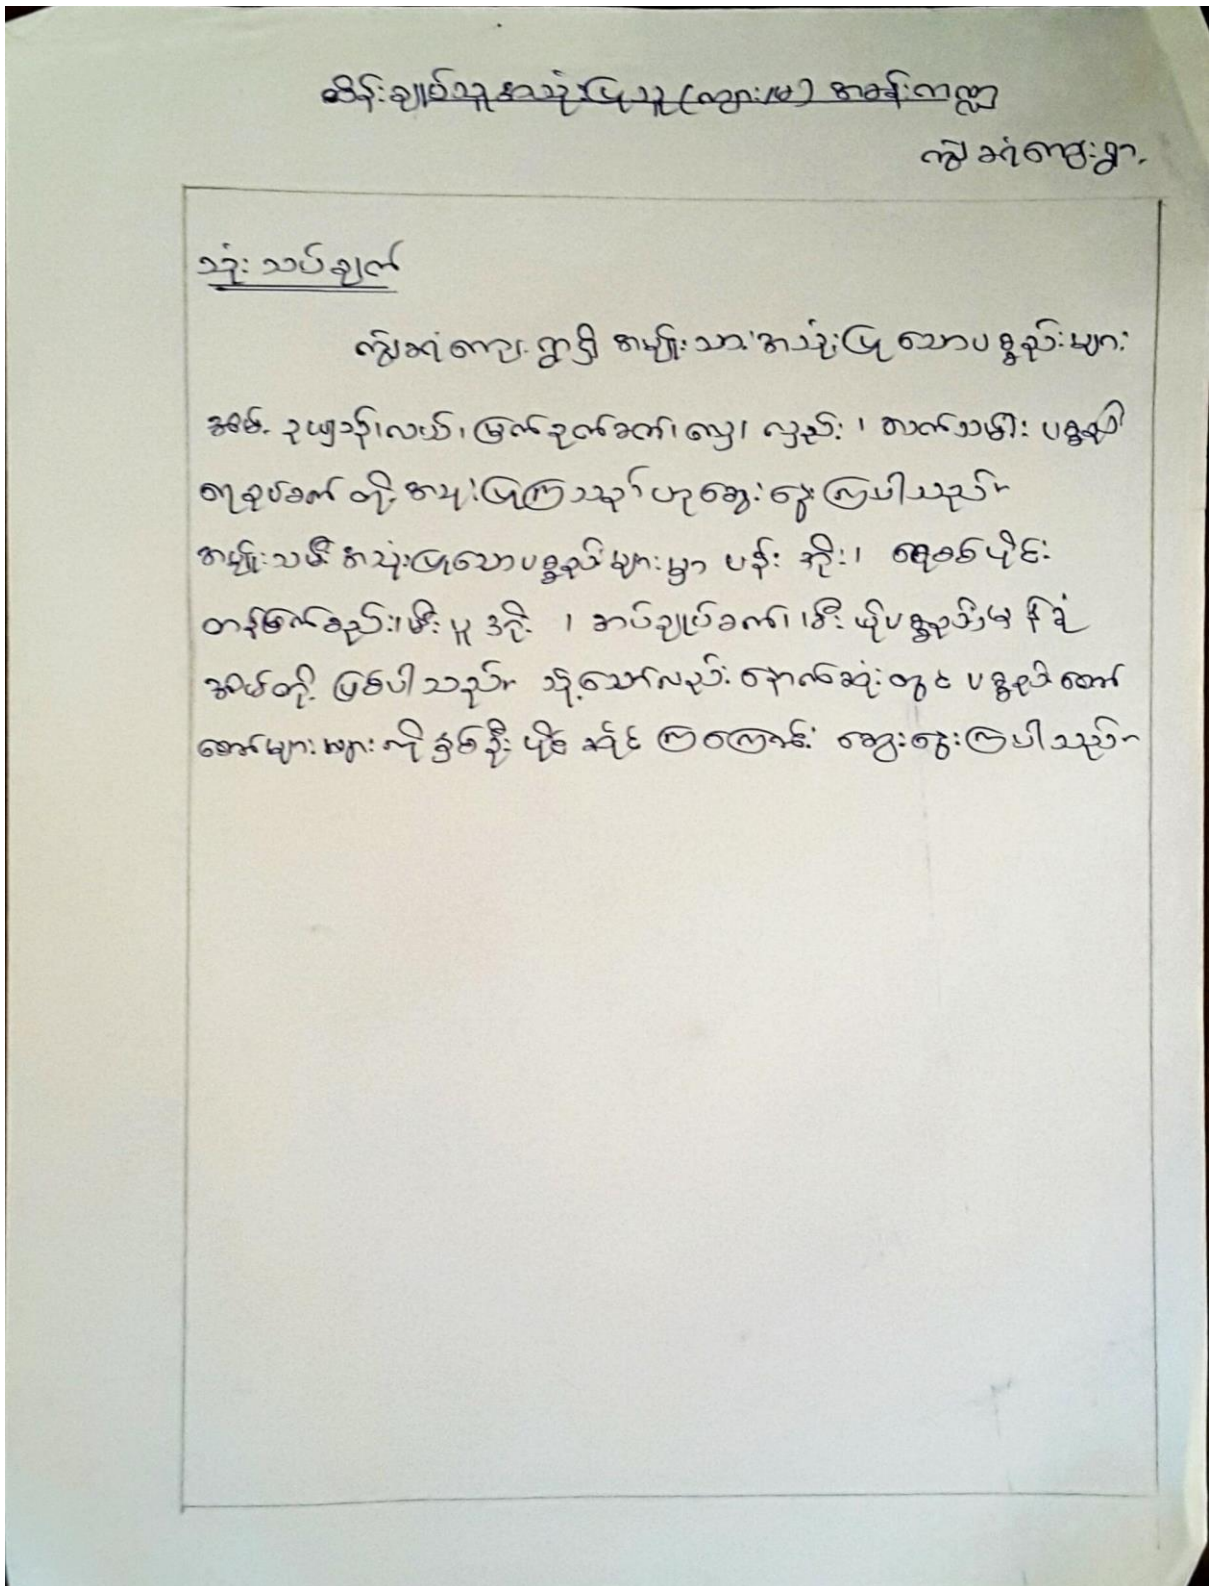 ထိန်းချုပ်သူ အသုံးပြုသူ (ကျား/မ) အခန်းကဏ္ဍ
ကျွဲဆုံကျေးရွာ
သုံးသပ်ချက်
ကျွဲဆုံကျေးရွာရှိ အမျိုးသားအသုံးပြုသောပစ္စည်းများ
အိမ်၊ ဥယျာဉ်၊ လယ်၊ မြက်ခုတ်စက်၊ လှေ၊ လှည်း၊ လက်သမား ပစ္စည်း၊
ရေစုပ်စက် တို့ အသုံးပြုကြသည်ဟု ဆွေးနွေးကြပါသည်။
အမျိုးသမီး အသုံးပြုသောပစ္စည်းများမှာ ပန်းအိုး၊ ရေစစ်ပိုင်း
တန်မြက်စည်း၊ မီးပူ ဒအိုး၊ အပ်ချုပ်စက်၊ မီးဖိုပစ္စည်း၊
အိမ်တို့ ဖြစ်ပါသည်။ သို့သော်လည်း နောက်ဆုံးတွင် ပစ္စည်းတော်
တော်များများကို နှစ်ဦးပိုင်ဆိုင်ကြကြောင်း ဆွေးနွေးကြပါသည်။